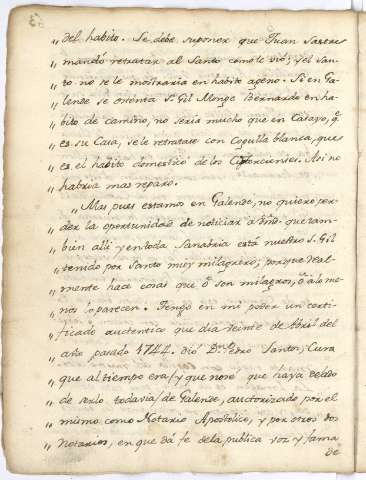 „ del habito. Se debe suponer que Juan Sastre
„ mandó retratar al Santo como le vió; y el San-
„ to no se le mostraria en habito ageno. Si en Ga-
„ lende se ostenta S. Gil Monge Bernardo en ha-
„ bito de camino, no seria mucho que en Casayo, q.
„ es su Casa, se le retratase con Cogulla blanca, que
„ es el habito domestico de los Cistercienses. Asi no
„ habria mas reparo.
„ Mas pues estamos en Galende, no quiero per-
„ der la oportunidad de noticiar a Vmd. que tam-
„ bien alli y en toda Sanabria está nuestro S. Gil
„ tenido por Santo muy milagrero; porque real-
„ mente hace cosas que ó son milagros, ó a lo me-
„ nos lo parecen. Tengo en mi poder un certi-
„ ficado autentico que dia veinte de Abril del
„ año pasado 1744. dió D. Pedro Santos, Cura
„ que al tiempo era (y que no se que haya dexado
„ de serlo todavia) de Galende, auctorizado por el
„ mismo como Notario Apostolico, y por otros dos
„ Notarios, en que dá fe de la publica voz y fama
de